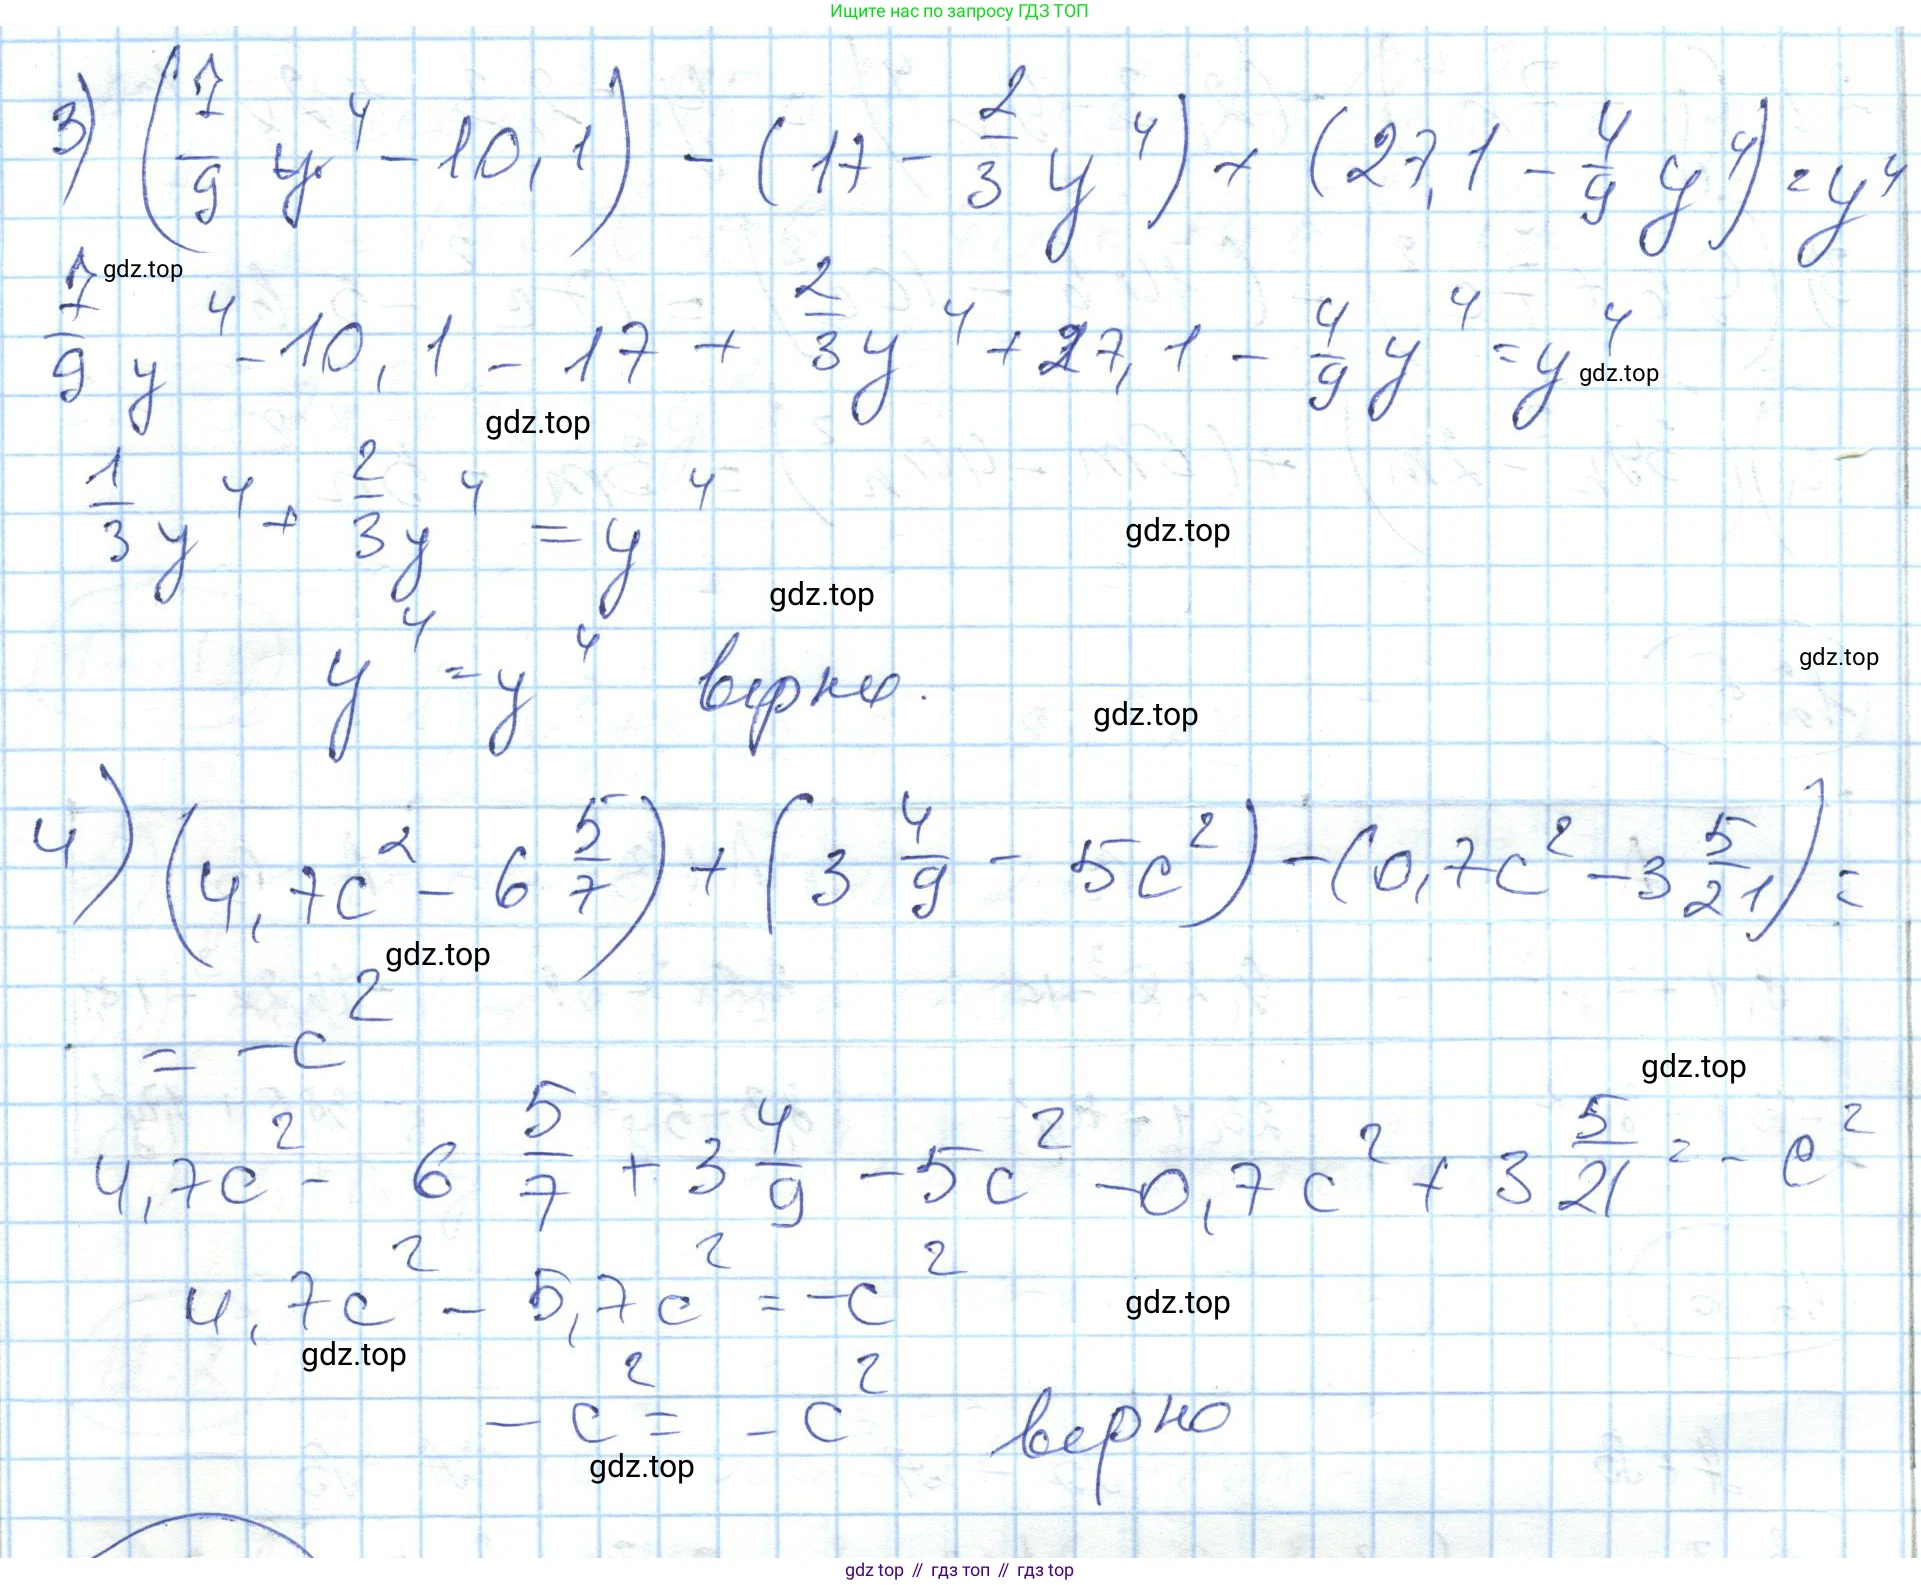 Ищите нас по запросу ГДЗ ТОП
3) (7/9 y⁴ - 10,1) - (17 - 2/3 y⁴) + (27,1 - 4/9 y⁴) = y⁴
gdz.top
7/9 y⁴ - 10,1 - 17 + 2/3 y⁴ + 27,1 - 4/9 y⁴ = y⁴
gdz.top
gdz.top
1/3 y⁴ + 2/3 y⁴ = y⁴
gdz.top
gdz.top
y⁴ = y⁴ верно.
gdz.top
gdz.top
4) (4,7c² - 6 5/7) + (3 4/9 - 5c²) - (0,7c² - 3 5/21) =
gdz.top
= -c²
gdz.top
4,7c² - 6 5/7 + 3 4/9 - 5c² - 0,7c² + 3 5/21 = -c²
4,7c² - 5,7c² = -c²
gdz.top
gdz.top
-c² = -c² верно
gdz.top
gdz top // гдз топ // гдз top